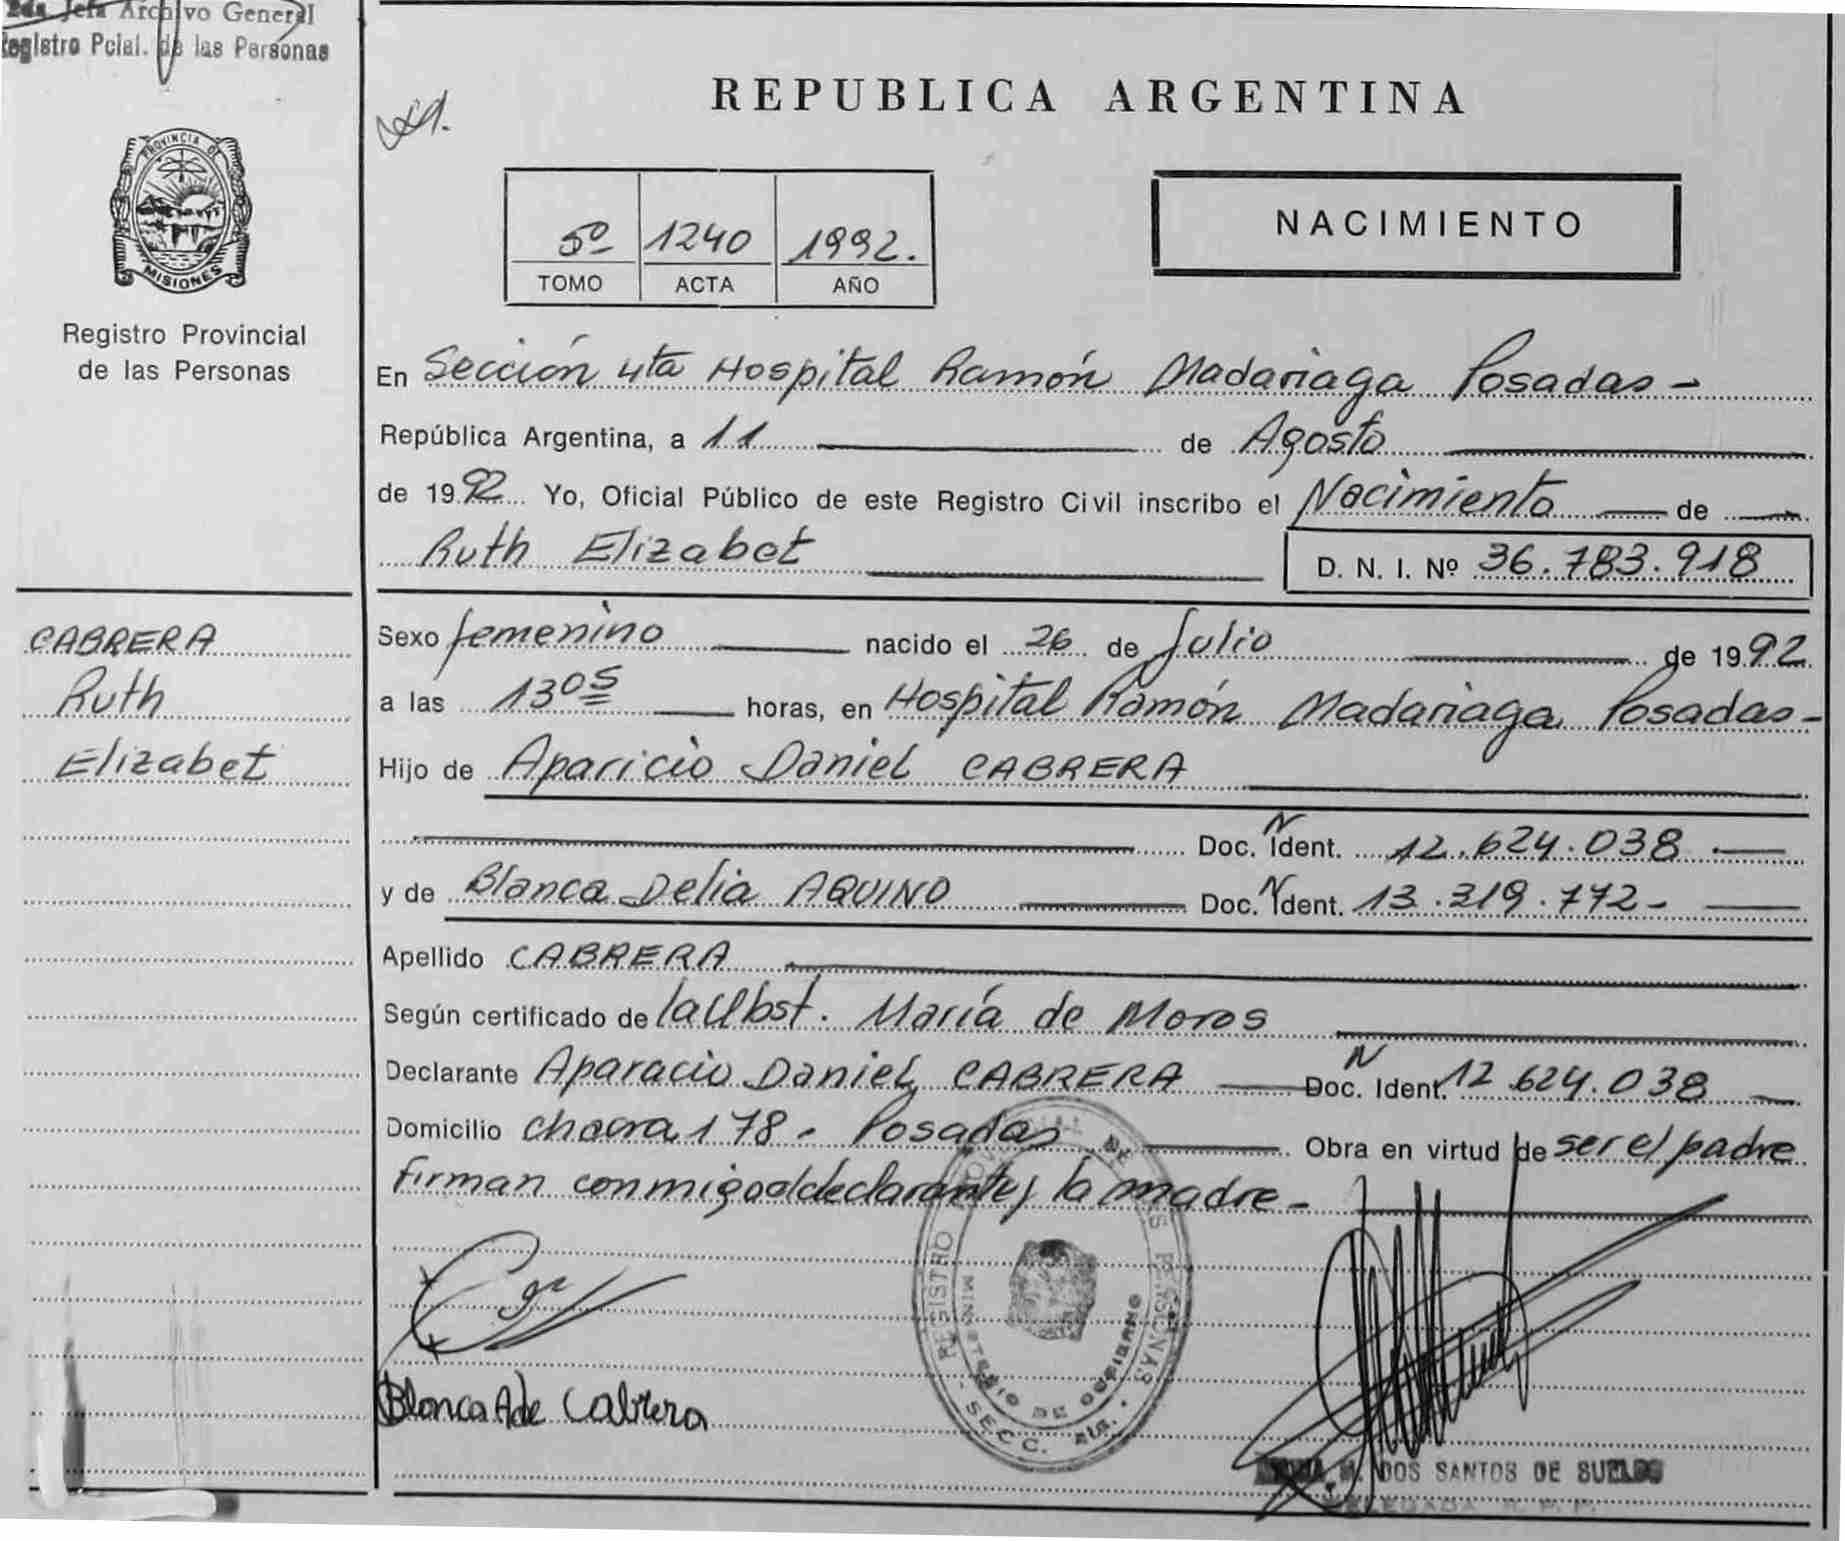 2da Jefa Archivo General
Registro Pcial. de las Personas
PROVINCIA DE
MISIONES
Registro Provincial
de las Personas
CABRERA
Ruth
Elizabet
REPUBLICA ARGENTINA
5º 1240 1992.
TOMO ACTA AÑO
NACIMIENTO
En Sección 4ta Hospital Ramón Madariaga Posadas -
República Argentina, a 11 de Agosto
de 1992 Yo, Oficial Público de este Registro Civil inscribo el Nacimiento de
Ruth Elizabet
D. N. I. Nº 36.783.918
Sexo femenino nacido el 26 de Julio de 1992
a las 13 05 horas, en Hospital Ramón Madariaga Posadas -
Hijo de Aparicio Daniel CABRERA
Doc. N Ident. 12.624.038
y de Blanca Delia AQUINO Doc. N Ident. 13.319.772 -
Apellido CABRERA
Según certificado de la Obst. María de Moros
Declarante Aparacio Daniel CABRERA Doc. N Ident. 12.624.038
Domicilio chacra 178 - Posadas Obra en virtud de ser el padre
firman conmigo el declarante y la madre -
Blanca A de Cabrera
REGISTRO PROVINCIAL DE LAS PERSONAS
MINISTERIO DE GOBIERNO
SECC. 4ta.
M. DOS SANTOS DE SUELDO
DELEGADA R. P. P.